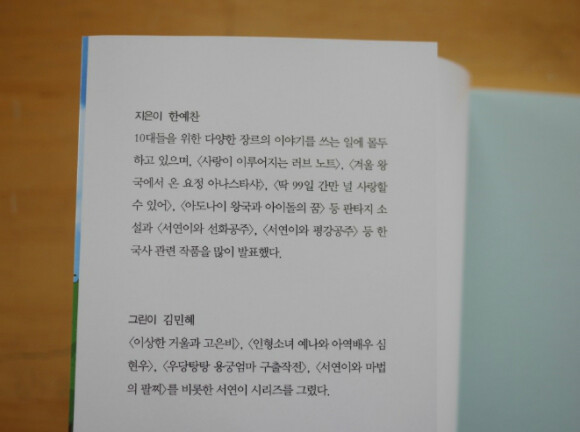 지은이 한예찬
10대들을 위한 다양한 장르의 이야기를 쓰는 일에 몰두
하고 있으며, 〈사랑이 이루어지는 러브 노트〉, 〈겨울 왕
국에서 온 요정 아나스타샤〉, 〈딱 99일 간만 널 사랑할
수 있어〉, 〈아도나이 왕국과 아이돌의 꿈〉 등 판타지 소
설과 〈서연이와 선화공주〉, 〈서연이와 평강공주〉 등 한
국사 관련 작품을 많이 발표했다.
그린이 김민혜
〈이상한 거울과 고은비〉, 〈인형소녀 예나와 아역배우 심
현우〉, 〈우당탕탕 용궁엄마 구출작전〉, 〈서연이와 마법
의 팔찌〉를 비롯한 서연이 시리즈를 그렸다.